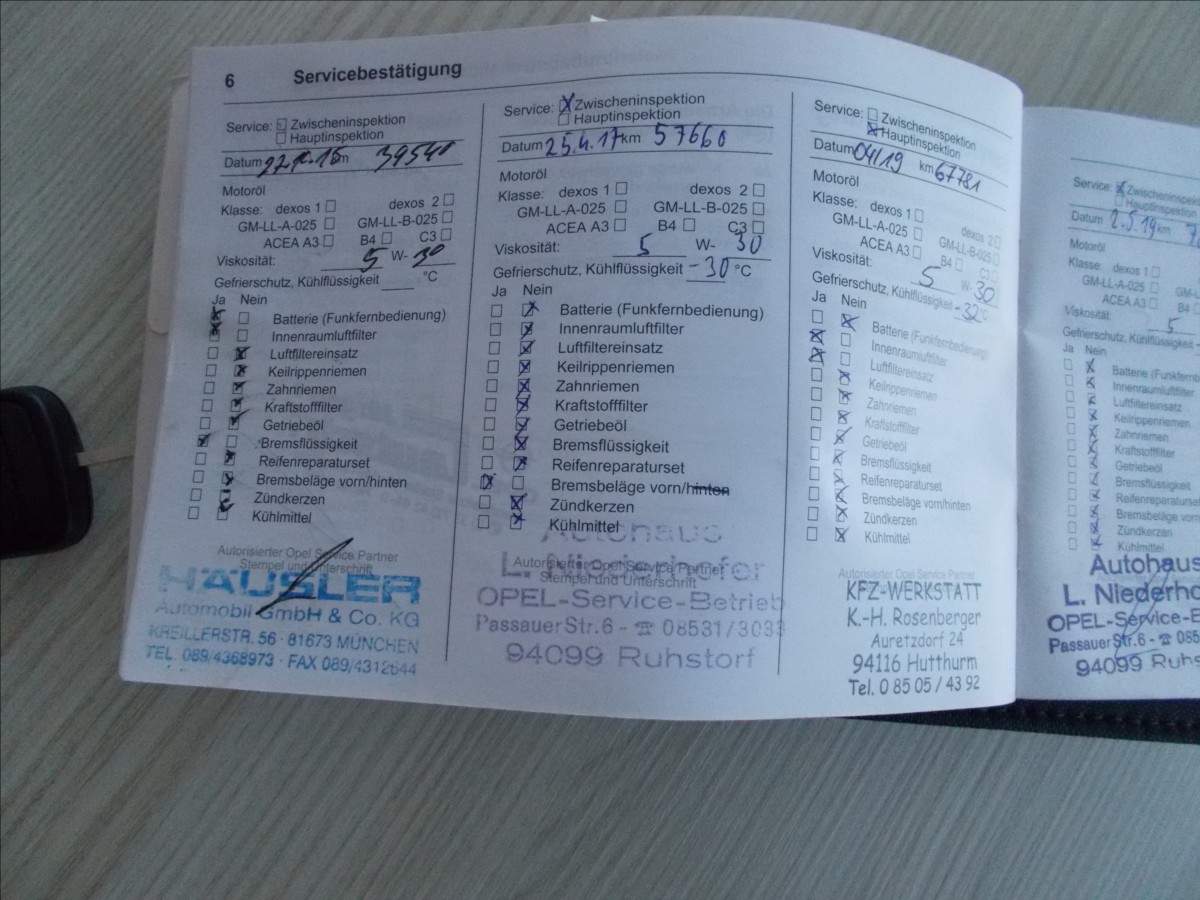 6 Servicebestätigung
Service: Zwischeninspektion
Hauptinspektion
Datum km 39540
Motoröl
Klasse: dexos 1 dexos 2
GM-LL-A-025 GM-LL-B-025
ACEA A3 B4 C3
Viskosität: 5 W- 30
Gefrierschutz, Kühlflüssigkeit °C
Ja Nein
Batterie (Funkfernbedienung)
Innenraumluftfilter
Luftfiltereinsatz
Keilrippenriemen
Zahnriemen
Kraftstofffilter
Getriebeöl
Bremsflüssigkeit
Reifenreparaturset
Bremsbeläge vorn/hinten
Zündkerzen
Kühlmittel
Autorisierter Opel Service Partner
Stempel und Unterschrift
HÄUSLER
Automobil GmbH & Co. KG
KREILLERSTR. 56 · 81673 MÜNCHEN
TEL. 089/4368973 · FAX 089/4312644
Service: Zwischeninspektion
Hauptinspektion
Datum 25.4.17 km 57660
Motoröl
Klasse: dexos 1 dexos 2
GM-LL-A-025 GM-LL-B-025
ACEA A3 B4 C3
Viskosität: 5 W- 30
Gefrierschutz, Kühlflüssigkeit -30 °C
Ja Nein
Batterie (Funkfernbedienung)
Innenraumluftfilter
Luftfiltereinsatz
Keilrippenriemen
Zahnriemen
Kraftstofffilter
Getriebeöl
Bremsflüssigkeit
Reifenreparaturset
Bremsbeläge vorn/hinten
Zündkerzen
Kühlmittel
Autohaus
Autorisierter Opel Service Partner
L. Niederhofer
Stempel und Unterschrift
OPEL-Service-Betrieb
Passauer Str. 6 - ☎ 08531/3033
94099 Ruhstorf
Service: Zwischeninspektion
Hauptinspektion
Datum 04/19 km 67781
Motoröl
Klasse: dexos 1 dexos 2
GM-LL-A-025 GM-LL-B-025
ACEA A3 B4 C3
Viskosität: 5 W- 30
Gefrierschutz, Kühlflüssigkeit -32 °C
Ja Nein
Batterie (Funkfernbedienung)
Innenraumluftfilter
Luftfiltereinsatz
Keilrippenriemen
Zahnriemen
Kraftstofffilter
Getriebeöl
Bremsflüssigkeit
Reifenreparaturset
Bremsbeläge vorn/hinten
Zündkerzen
Kühlmittel
Autorisierter Opel Service Partner
KFZ-WERKSTATT
K.-H. Rosenberger
Auretzdorf 24
94116 Hutthurm
Tel. 0 85 05 / 43 92
Service: Zwischeninspektion
Hauptinspektion
Datum 2.5.19 km 7
Motoröl
Klasse: dexos 1
GM-LL-A-025 GM-
ACEA A3
Viskosität: 5
Gefrierschutz, Kühlflüssigkeit -
Ja Nein
Batterie (Funkfernb
Innenraumluftfilter
Luftfiltereinsatz
Keilrippenriemen
Zahnriemen
Kraftstofffilter
Getriebeöl
Bremsflüssigkeit
Reifenreparaturset
Bremsbeläge vorn/hi
Zündkerzen
Kühlmittel
Autohaus
L. Niederho
OPEL-Service-B
Passauer Str. 6 - ☎ 085
94099 Ruhs